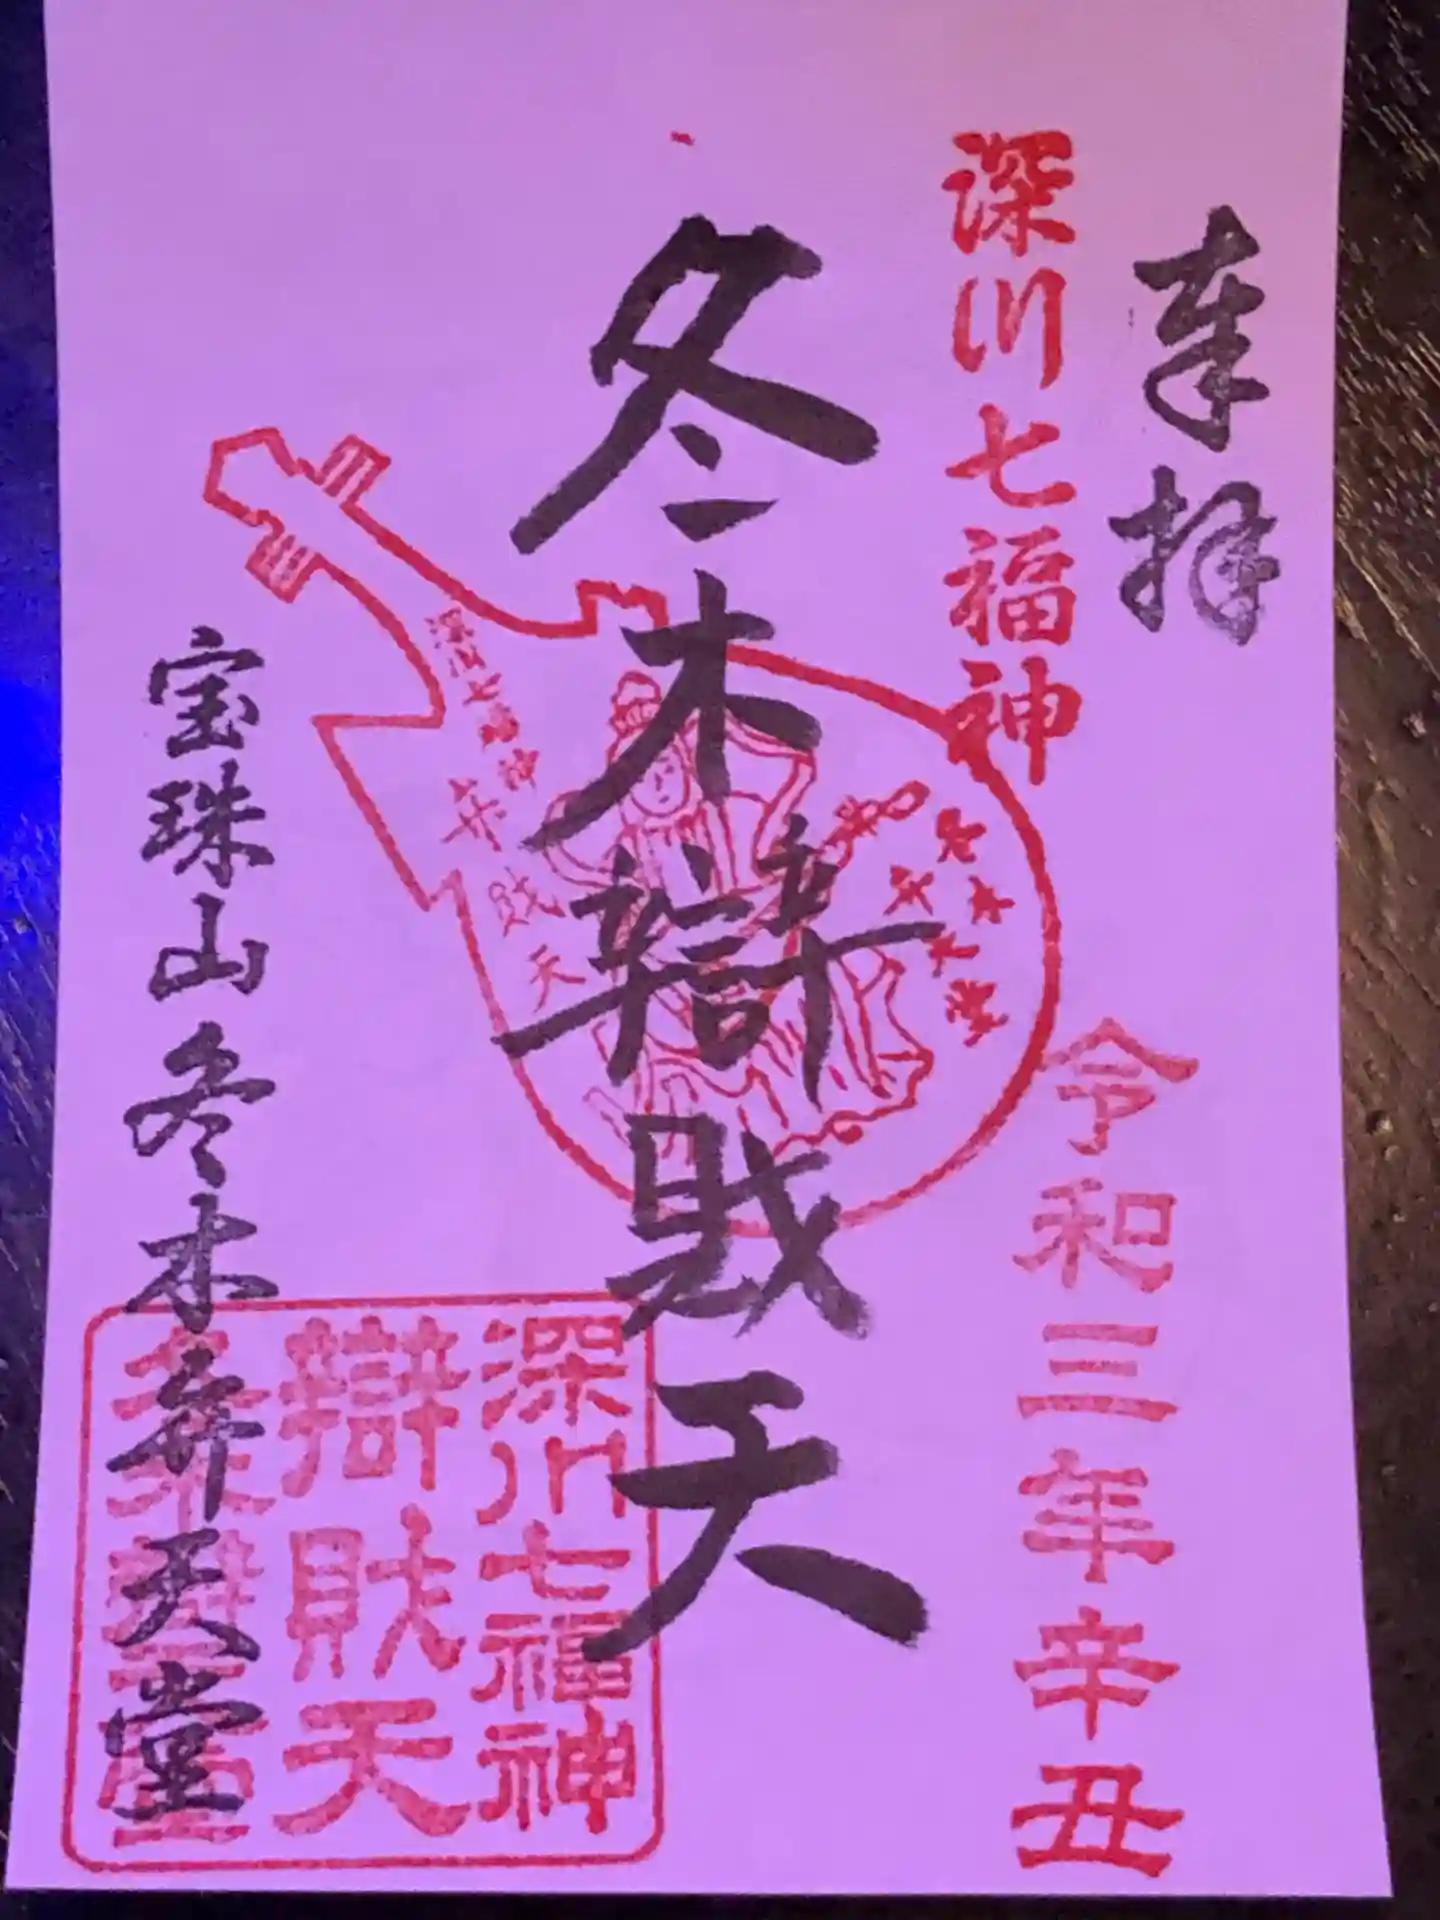 奉拝
深川七福神
令和三年辛丑
冬木辯財天
深川七福神
弁財天
冬木
弁天堂
深川七福神
辯財天
宝珠山冬木弁天堂